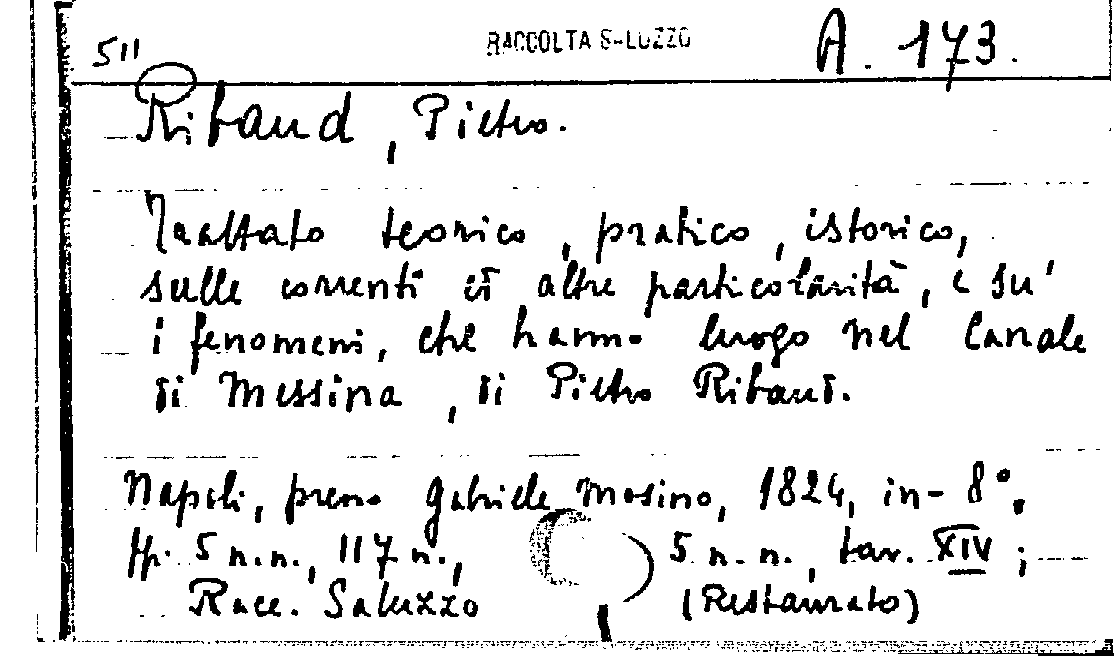 511 RACCOLTA SALUZZO A. 173.
Ribaud, Pietro.
Trattato teorico, pratico, istorico,
sulle correnti ed altre particolarità, e su'
i fenomeni, che hanno luogo nel Canale
di Messina, di Pietro Ribaud.
Napoli, presso Gabriele Mosino, 1824, in-8°,
pp. 5 n.n., 117 n., 5 n.n., tav. XIV;
Racc. Saluzzo (Restaurato)